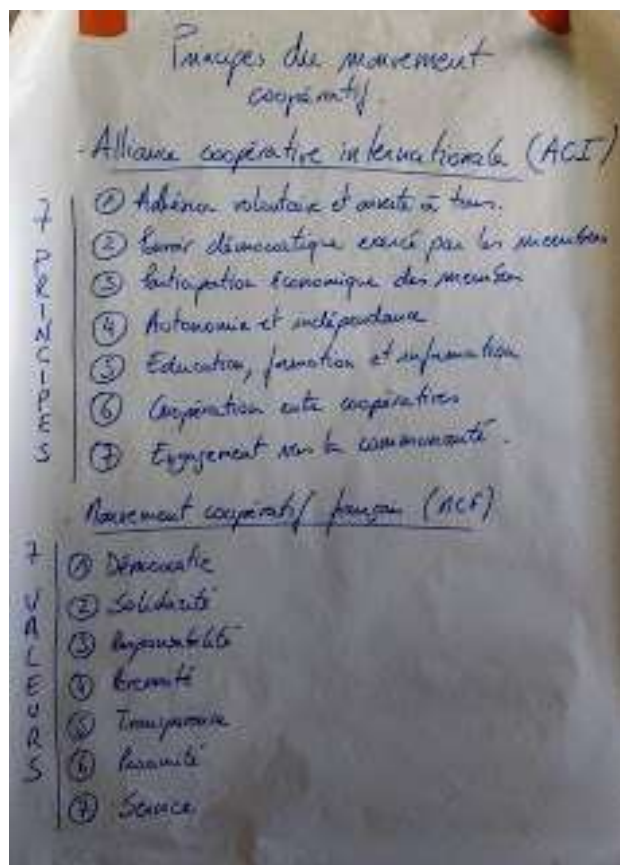 Principes du mouvement
coopératif.
- Alliance coopérative internationale (ACI)
7 PRINCIPES
① Adhésion volontaire et ouverte à tous.
② Pouvoir démocratique exercé par les membres
③ Participation économique des membres
④ Autonomie et indépendance
⑤ Education, formation et information
⑥ Coopération entre coopératives
⑦ Engagement vers la communauté.
Mouvement coopératif français (MCF)
7 VALEURS
① Démocratie
② Solidarité
③ Responsabilité
④ Pérennité
⑤ Transparence
⑥ Proximité
⑦ Service